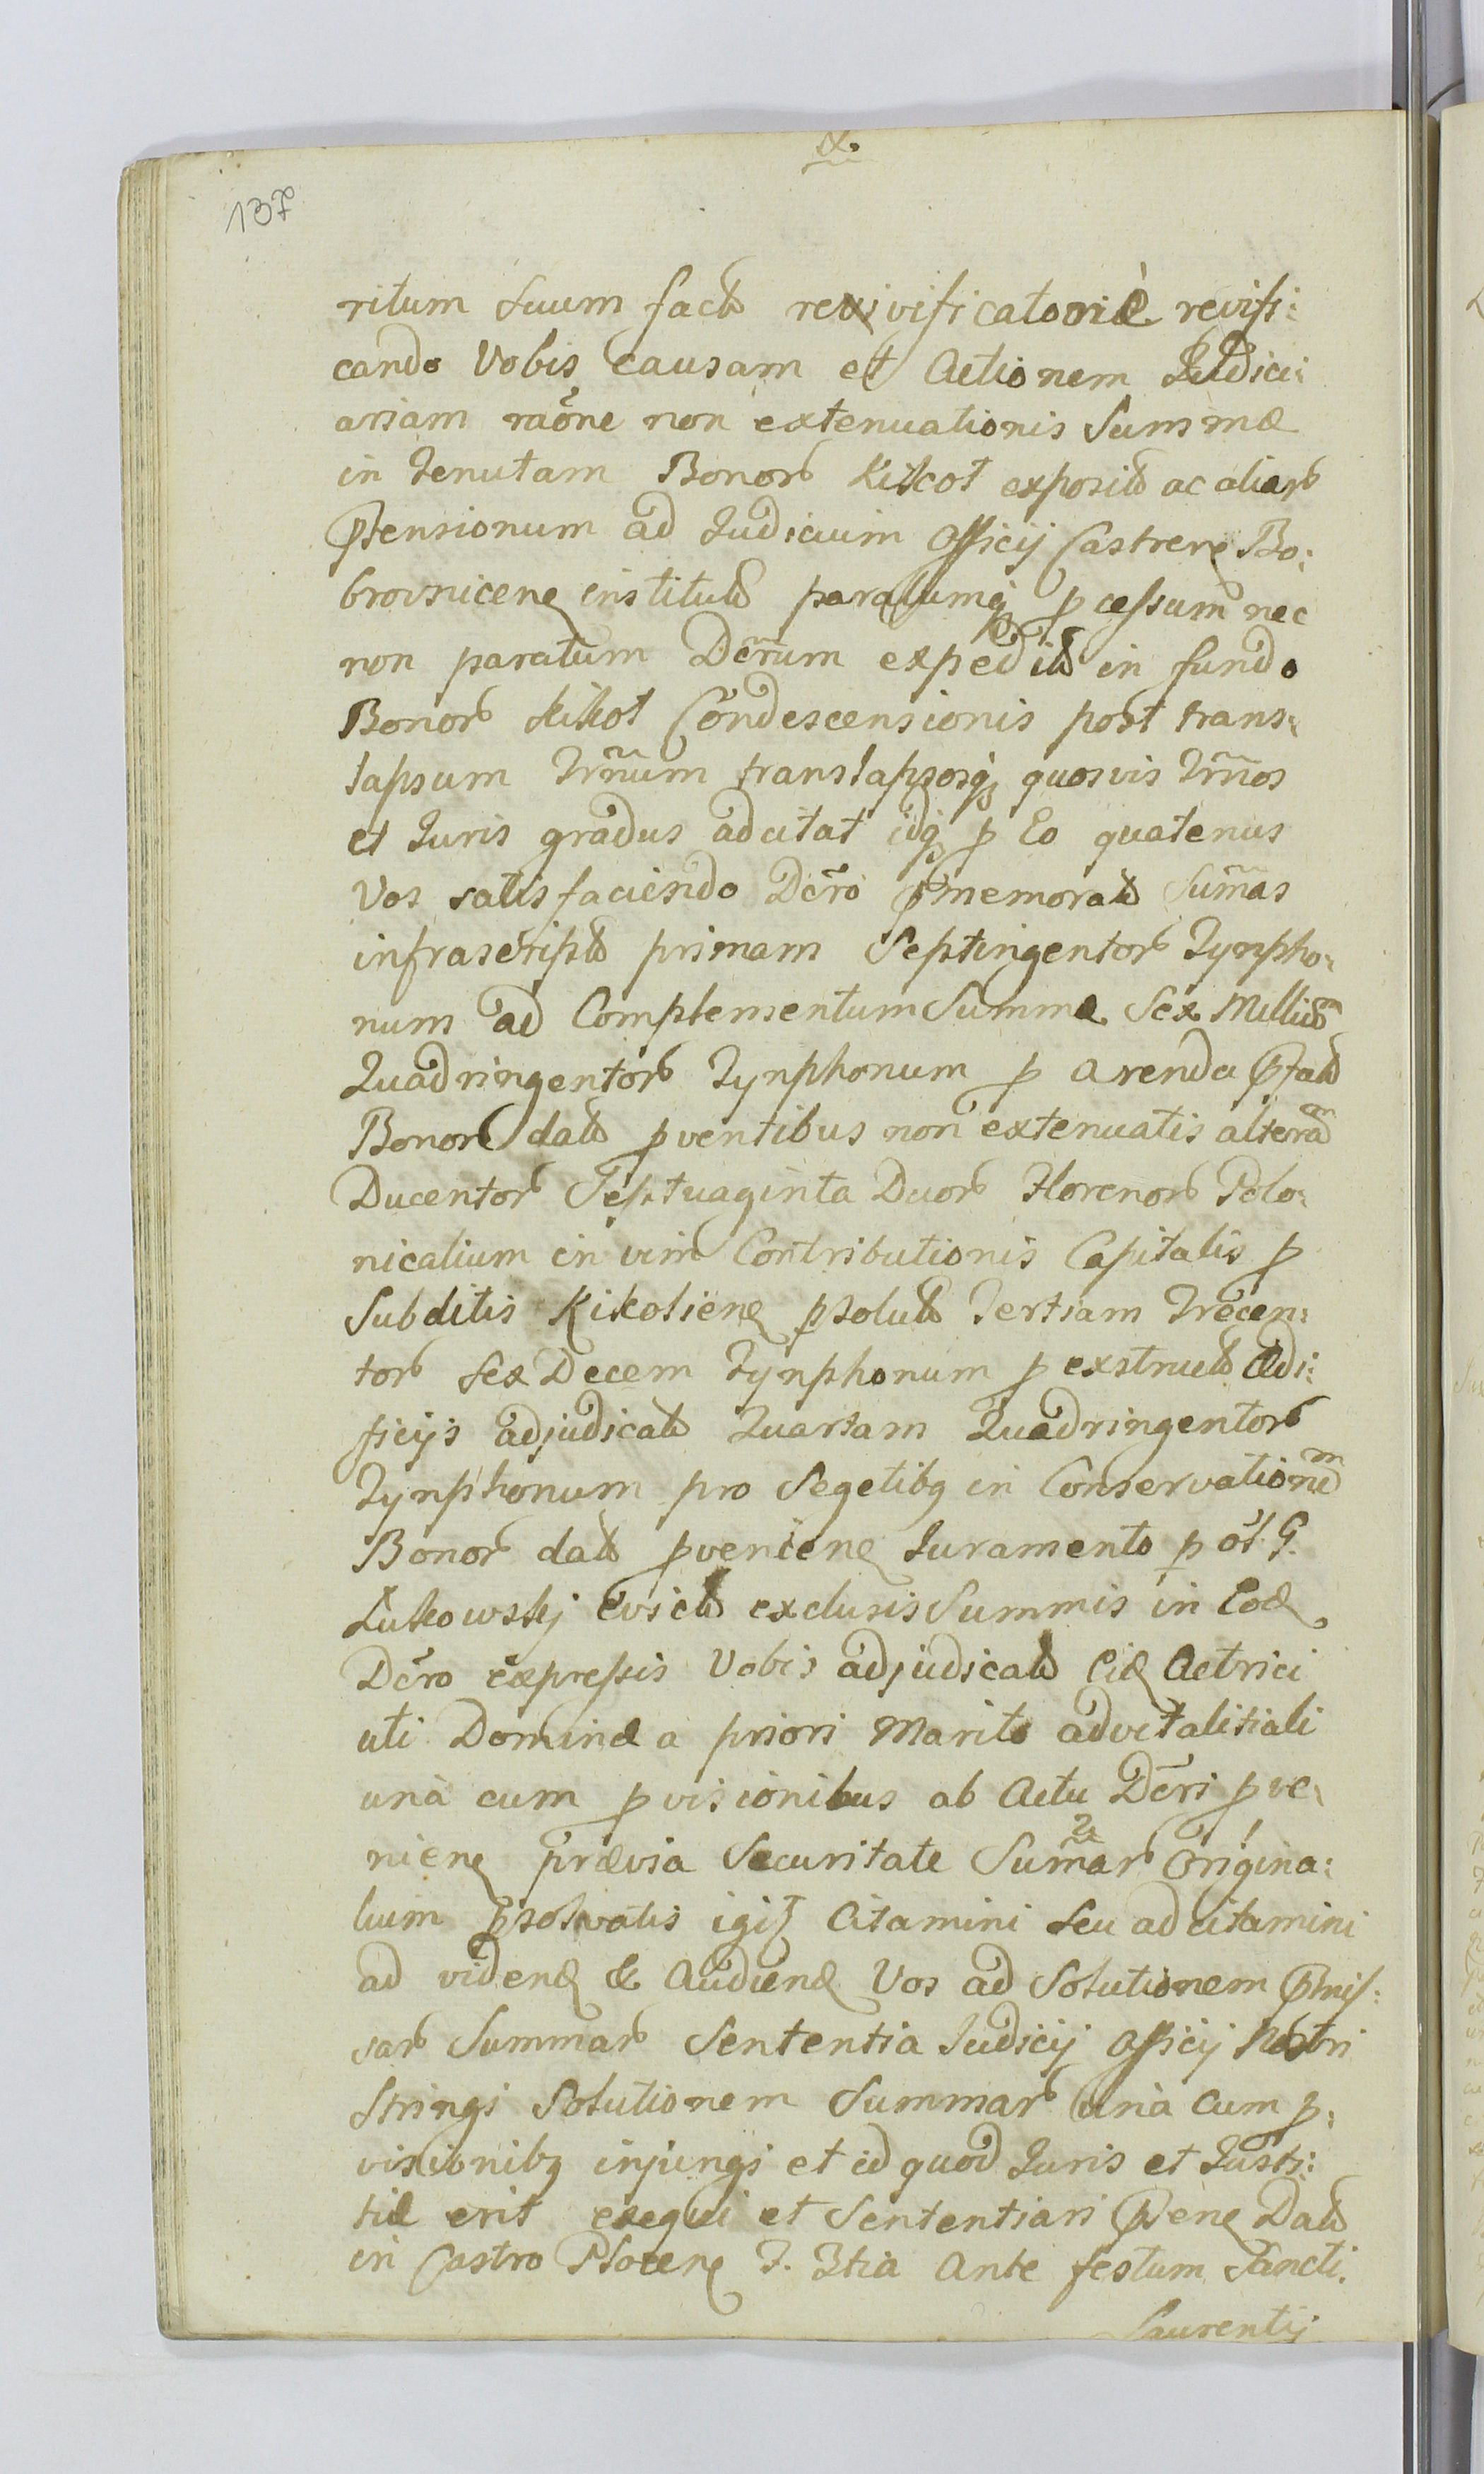 137
ritum suum fact revivificatoriè revifi:
cando Vobis causam et Actionem Judici:
ariam raõne non extenuationis Summæ
in tenutam Bonor Kikot exposit ac aliar
ptensionum ad Judicium Officij Castren Bo:
brovnicen institut paratumq pcessum nec
non paratum Dcrum expedit in fundo
Bonor Kikot Condescensionis post trans:
lapsum Trnum translapsosq quosvis Trnos
et Juris gradus adcitat idq p Eo quatenus
Vos satisfaciendo Dcro pmemorat Sumas
infrascript primam Septingentor Tynpho:
num ad Complementum Summæ Sex Millium
Quadringentor Tynphonum p arenda pfat
Bonor dat pventibus non extenuatis alteram
Ducentor Septuaginta Duor Florenor Polo:
nicalium in vim Contributionis Capitalis p
Subditis Kikolien psolut Tertiam Trecen:
tor sex Decem Tynphonum p exstruct Ædi:
ficijs adjudicat Quartam Quadringentor
Tynphonum pro Segetibq in Conservationem
Bonor dat pvenien Juramento p ol. G.
Lukowskj evict exclusis Summis in Eod
Dcro expressis Vobis adjudicat Eid Actrici
uti Dominæ a priori Marito advitalitiali
unà cum pvisionibus ab Actu Dcri pve:
nien prævia Securitate Sumar Origina:
lium psolvatis igit Citamini seu adcitamini
ad vidend & Audiend Vos ad Solutionem pmis:
sar Summar Sententia Judicij Officij Nostri
stringi Solutionem Summar unà cum p:
visionibq injungi et id quod Juris et Justi:
tiæ erit exequi et Sententiari psen Dat
in Castro Plocen F. 3tia Ante festum Sancti.
Laurentij